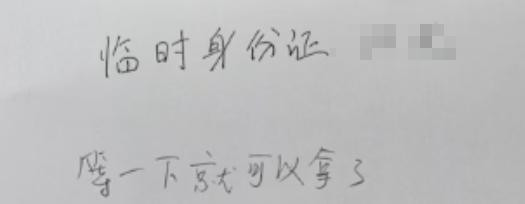 临时身份证
等一下就可以拿了